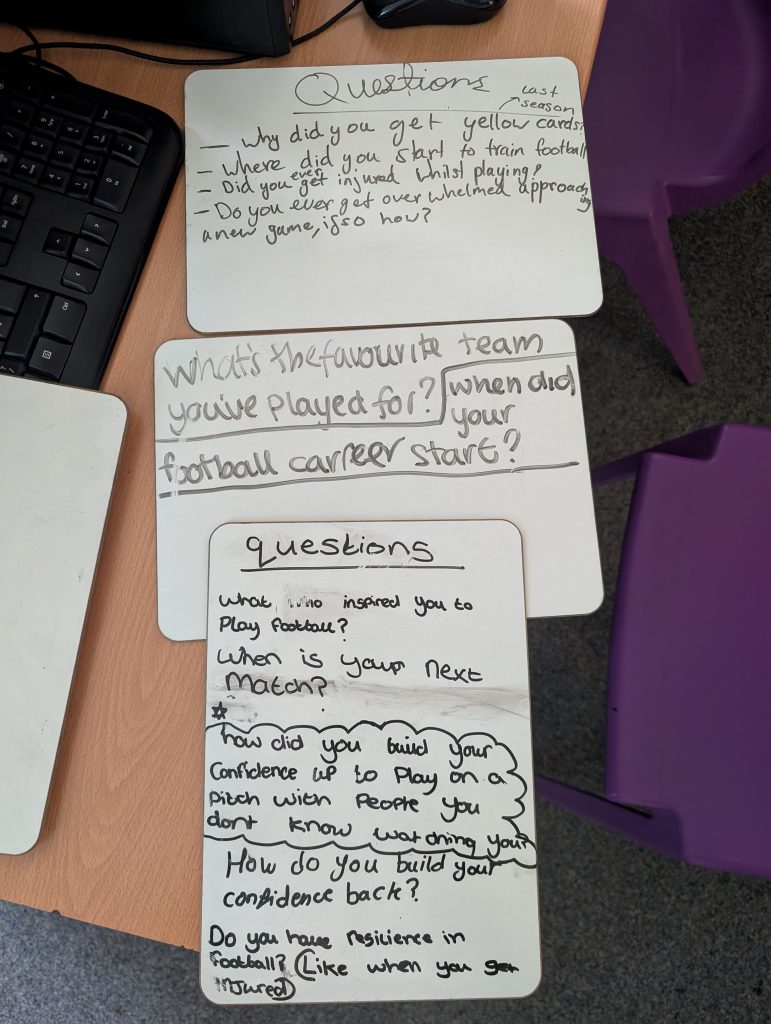 Questions
Last
season
— Why did you get yellow cards?
- Where did you start to train football
- Did you ever get injured whilst playing?
- Do you ever get over whelmed approaching
a new game, if so how?
What's the favourite team
you've played for?
when did
your
football carreer start?
questions
What who inspired you to
Play football?
When is your next
Match?
how did you build your
Confidence up to Play on a
Pitch with People you
dont know watching you?
How do you build your
confidence back?
Do you have resilience in
football? (Like when you get
injured)